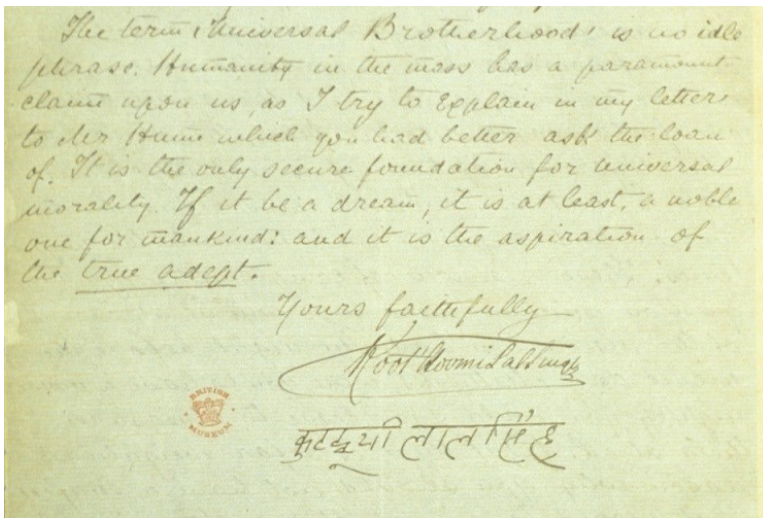 The term 'Universal Brotherhood' is no idle
phrase. Humanity in the mass has a paramount
claim upon us, as I try to explain in my letter
to Mr Hume which you had better ask the loan
of. It is the only secure foundation for universal
morality. If it be a dream, it is at least, a noble
one for mankind: and it is the aspiration of
the true adept.
Yours faithfully
Koot' Hoomi Lal Singh
BRITISH
MUSEUM
लाल सिंह